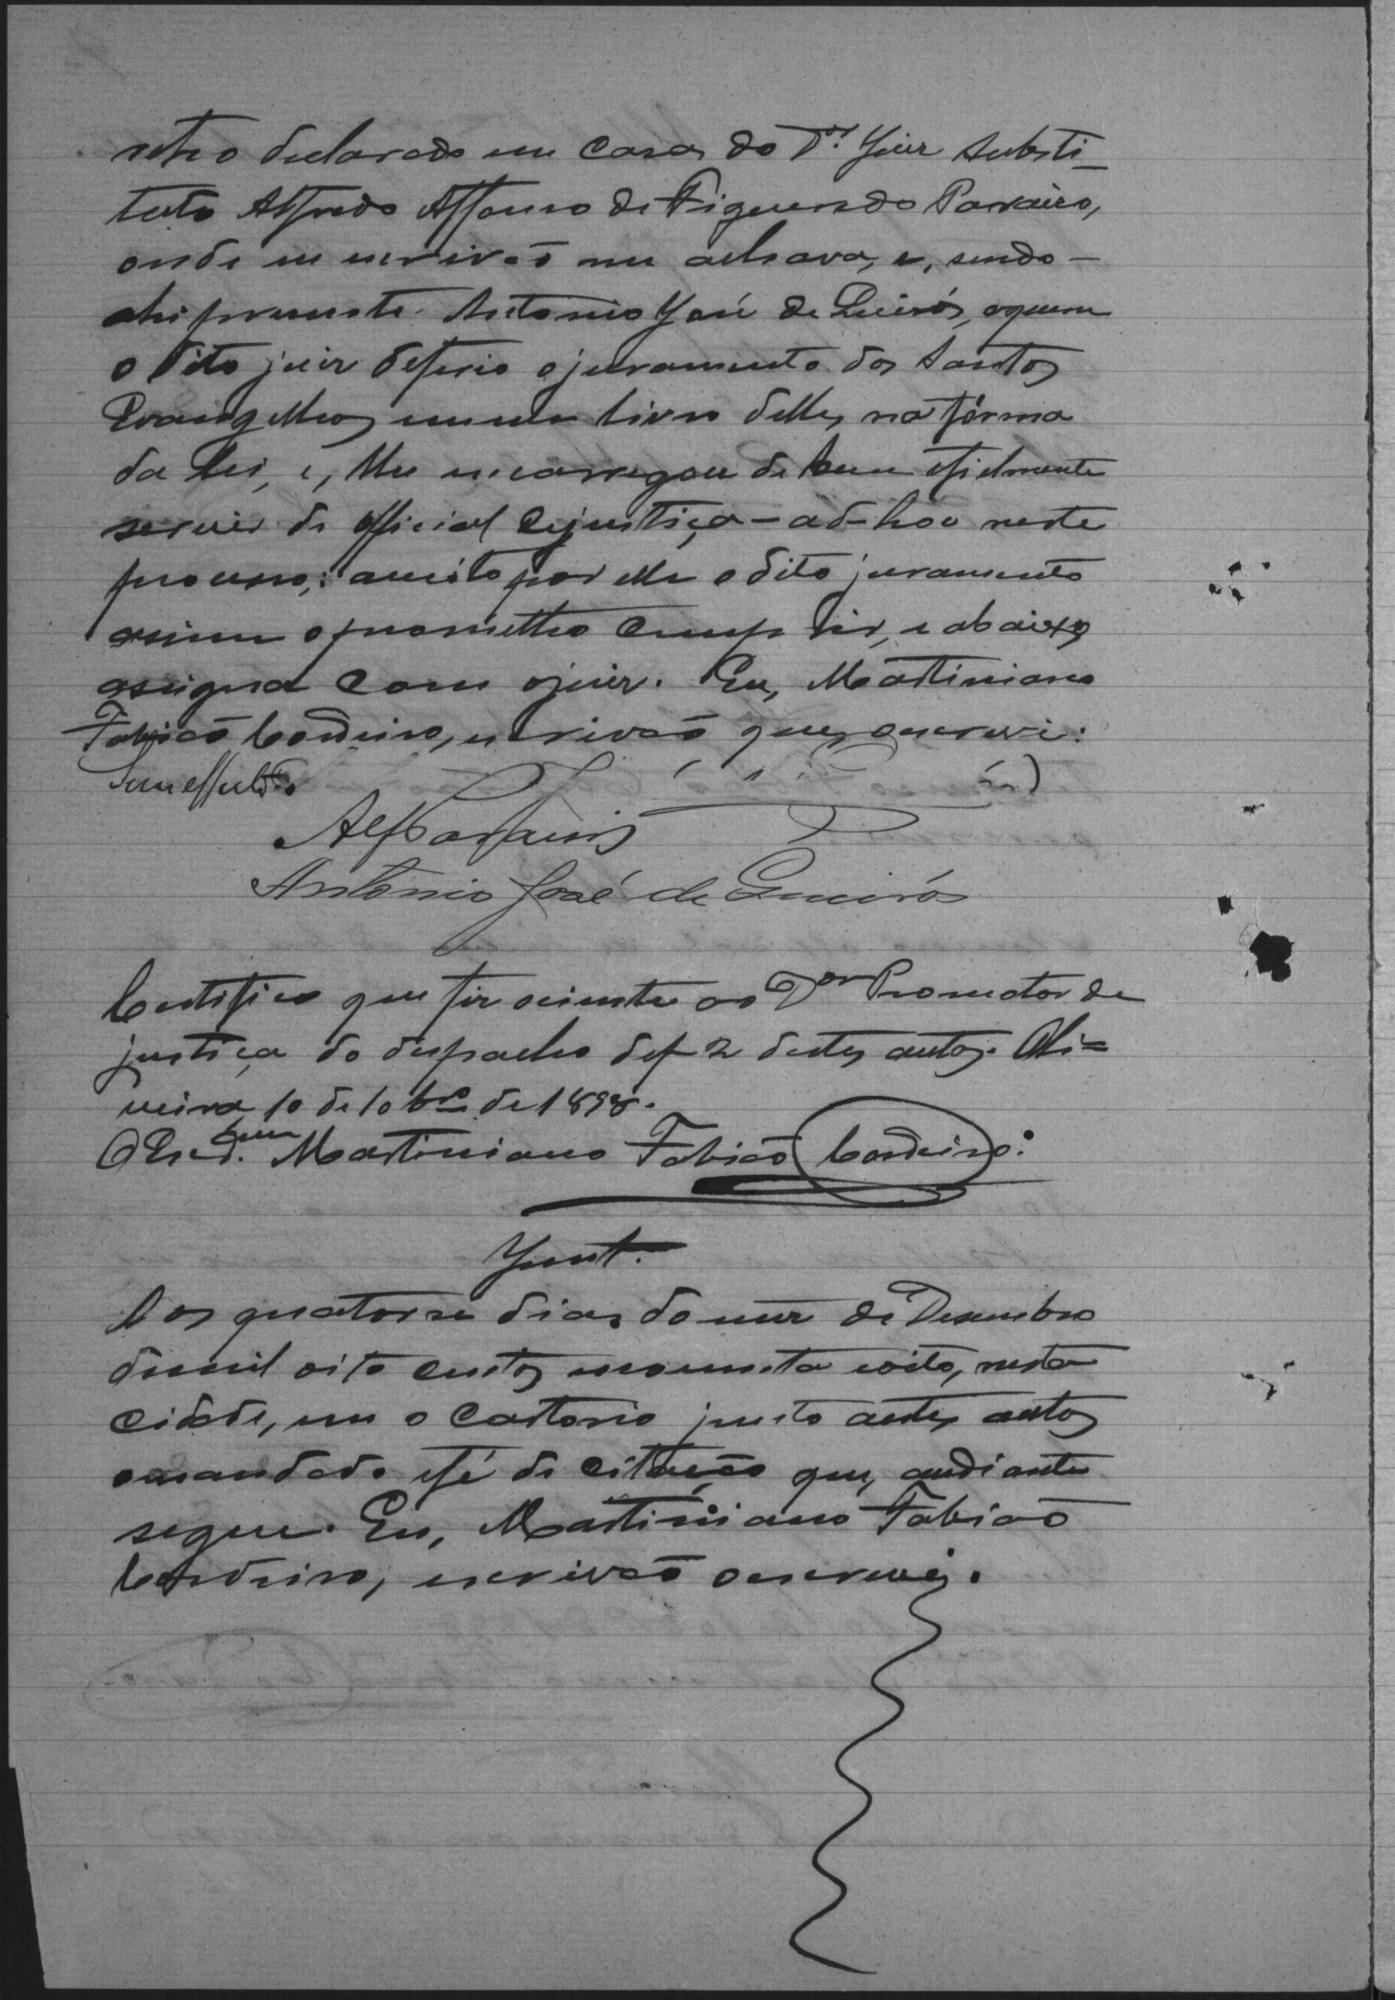 retro declarado em casa do Dr. Juiz Substi-
tuto Alfredo Affonso de Figueiredo Paraiso,
onde eu escrivão me achava, e, sendo -
ahi presente Antonio José de Queirós, a quem
o dito juiz deferio o juramento dos Santos
Evangelhos em um livro delles, na fórma
da lei, e, lhe encarregou de bem e fielmente
servir de official de justiça - ad-hoc neste
processo; aceito por elle o dito juramento
assim o prometteo cumprir, e abaixo
assigna com o juiz. Eu, Martiniano
Fabião Cordeiro, escrivão que, o escrevi:
Sem effeito
Antonio José de Queirós
Certifico que fiz sciente ao Dor Promotor de
justiça do despacho de f 2 destes autos. Oli=
veira, 10 de 10bro de 1898.
O Escm d. Martiniano Fabião Cordeiro:
Junt.
Aos quatorze dias do mez de Desembro
de mil oito centos e noventa e oito, nesta
cidade, em o Cartorio junto a estes autos
o mandado e fé de citação que, a adiante
segue. Eu, Martiniano Fabião
Cordeiro, escrivão o escrevi.